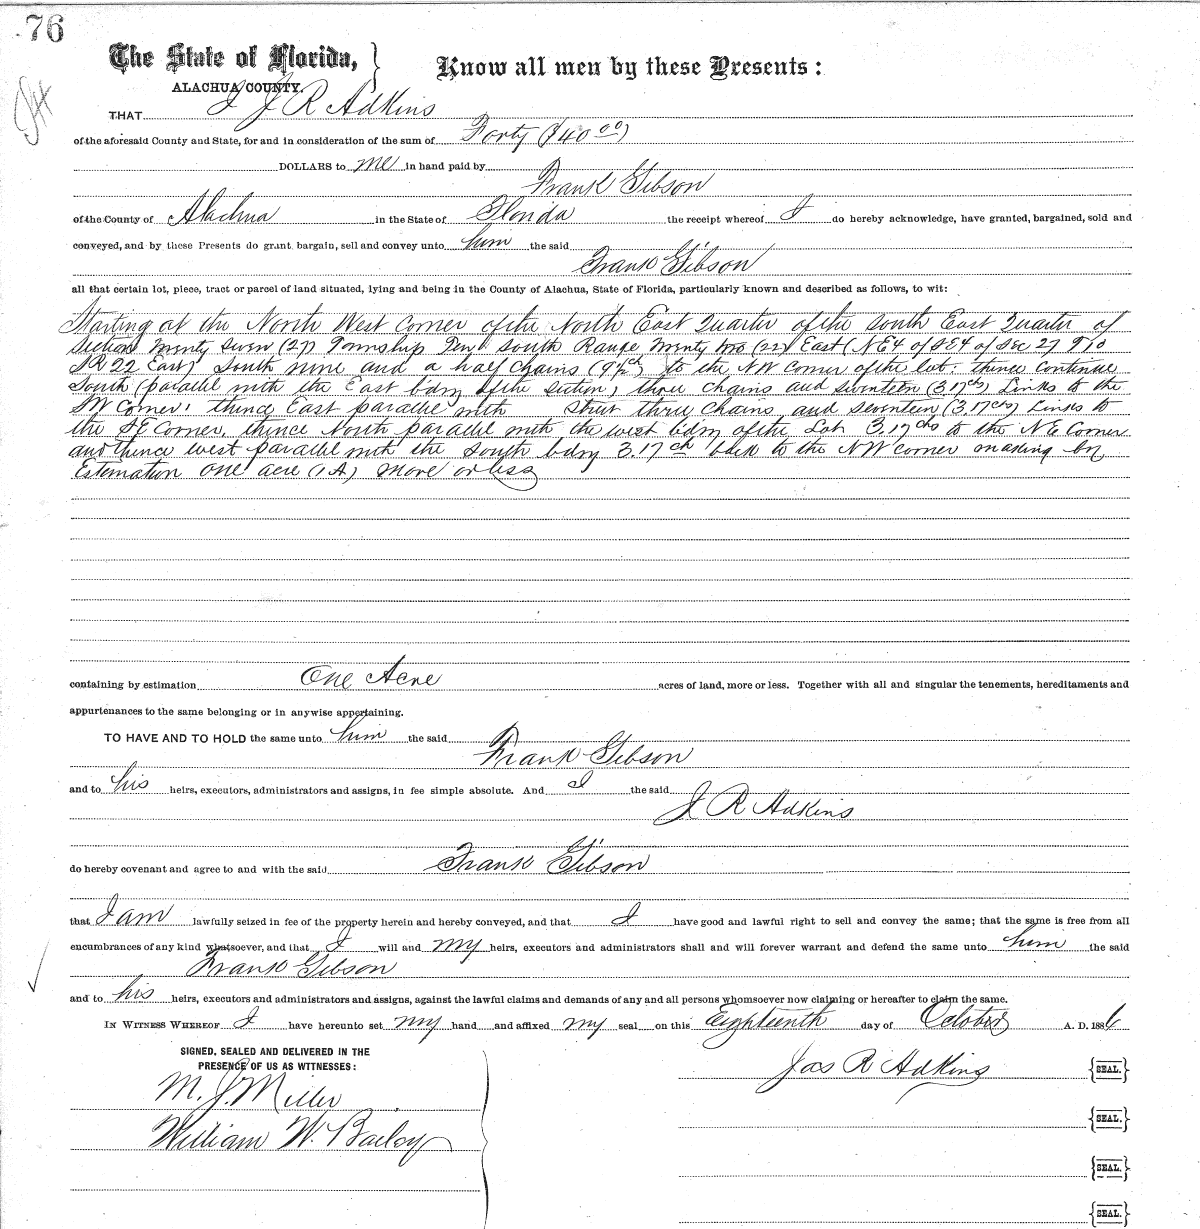 76
The State of Florida, } Know all men by these Presents:
ALACHUA COUNTY.
THAT I J R Adkins
of the aforesaid County and State, for and in consideration of the sum of Forty ($40 00)
DOLLARS to me in hand paid by
Frank Gibson
of the County of Alachua in the State of Florida the receipt whereof I do hereby acknowledge, have granted, bargained, sold and
conveyed, and by these Presents do grant, bargain, sell and convey unto him the said
Frank Gibson
all that certain lot, piece, tract or parcel of land situated, lying and being in the County of Alachua, State of Florida, particularly known and described as follows, to wit:
Starting at the North West Corner of the North East Quarter of the South East Quarter of
Section Twenty Seven (27) Township Ten South Range Twenty two (22) East (NE4 of SE4 of Sec 27 T10
S R 22 East) South nine and a half chains (9½ch) to the NW Corner of the lot. thence continue
South (parallel with the East bdry of the section) three chains and seventeen (3.17ch) Links to the
SW Corner, thence East parallel with street three chains and seventeen (3.17chs) Links to
the SE Corner, thence North parallel with the west bdry of the Lot 3.17chs to the NE Corner
and thence west parallel with the South bdry 3.17ch back to the NW Corner making by
Estimation one acre (1A) more or less
containing by estimation One Acre acres of land, more or less. Together with all and singular the tenements, hereditaments and
appurtenances to the same belonging or in anywise appertaining.
TO HAVE AND TO HOLD the same unto him the said
Frank Gibson
and to his heirs, executors, administrators and assigns, in fee simple absolute. And I the said
J R Adkins
do hereby covenant and agree to and with the said Frank Gibson
that I am lawfully seized in fee of the property herein and hereby conveyed, and that I have good and lawful right to sell and convey the same; that the same is free from all
encumbrances of any kind whatsoever, and that I will and my heirs, executors and administrators shall and will forever warrant and defend the same unto him the said
Frank Gibson
and to his heirs, executors and administrators and assigns, against the lawful claims and demands of any and all persons whomsoever now claiming or hereafter to claim the same.
IN WITNESS WHEREOF I have hereunto set my hand and affixed my seal on this Eighteenth day of October A. D. 1886
SIGNED, SEALED AND DELIVERED IN THE
PRESENCE OF US AS WITNESSES:
Jas R Adkins {SEAL.}
M. J. Miller
{SEAL.}
William W. Bailey
{SEAL.}
{SEAL.}